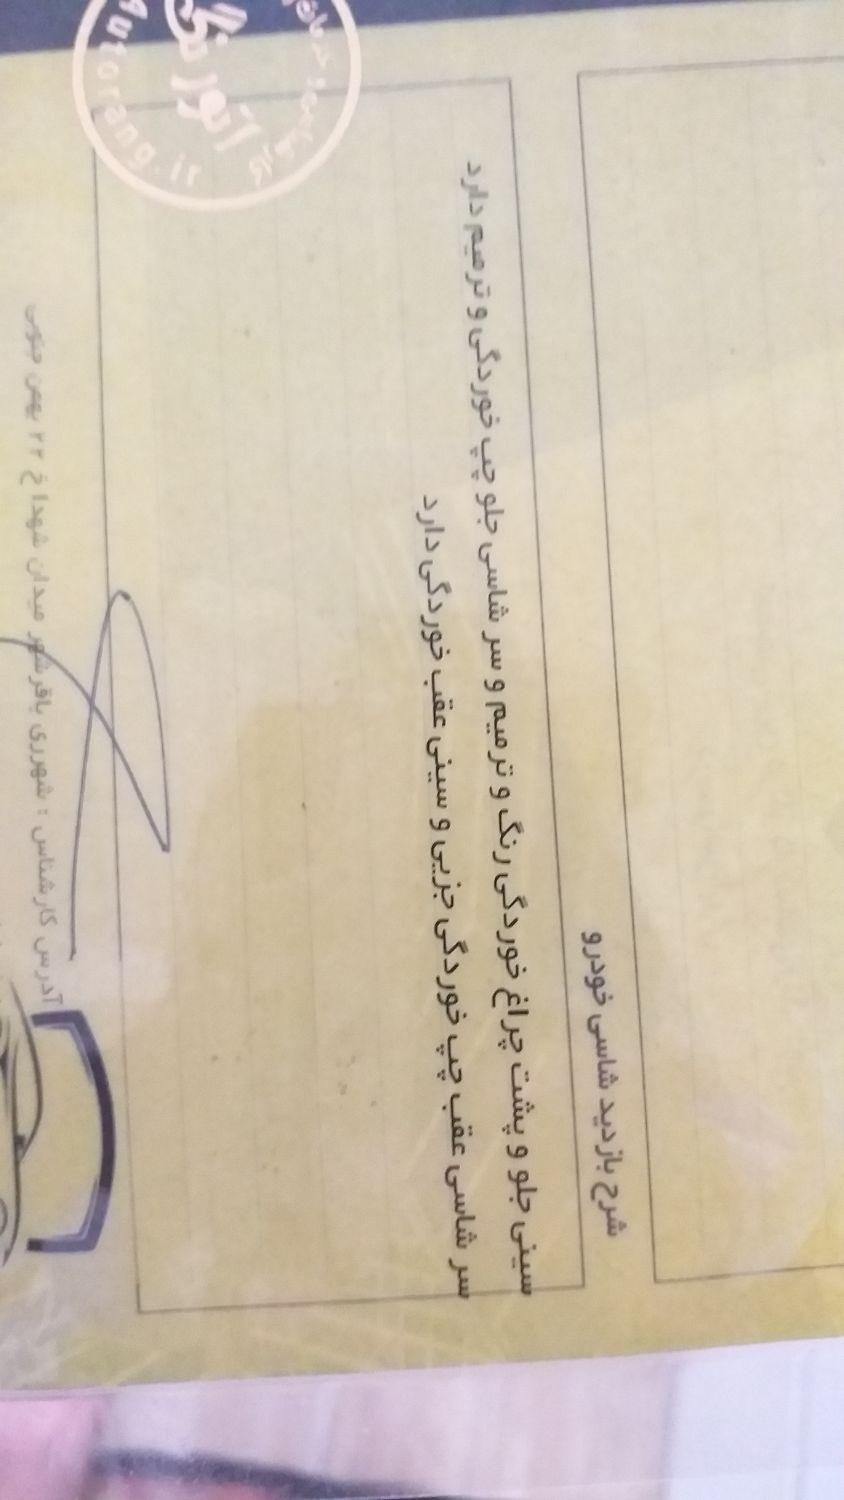 شرح بازدید شاسی خودرو
سینی جلو و پشت چراغ خوردگی رنگ و ترمیم و سر شاسی جلو چپ خوردگی و ترمیم دارد
سر شاسی عقب چپ خوردگی جزیی و سینی عقب خوردگی دارد
آدرس کارشناس : شهرری باقرشهر میدان شهدا خ ۲۲ بهمن جنوبی
اتورنگ
Autorang.ir